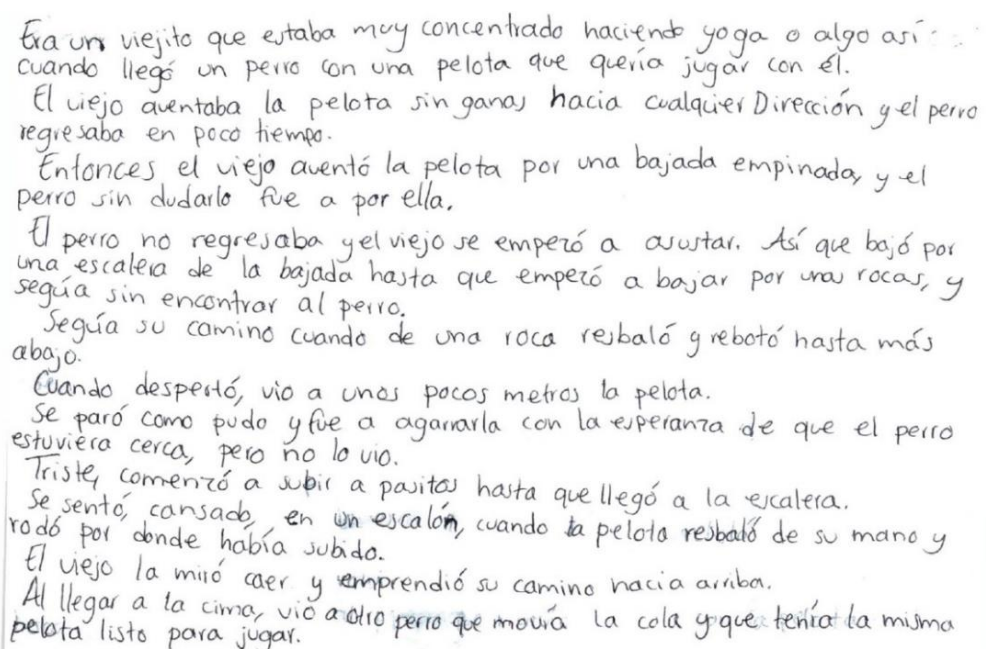 Era un viejito que estaba muy concentrado haciendo yoga o algo así
cuando llegó un perro con una pelota que quería jugar con él.
El viejo aventaba la pelota sin ganas hacia cualquier Dirección y el perro
regresaba en poco tiempo.
Entonces el viejo aventó la pelota por una bajada empinada, y el
perro sin dudarlo fue a por ella.
El perro no regresaba y el viejo se empezó a asustar. Así que bajó por
una escalera de la bajada hasta que empezó a bajar por unas rocas, y
seguía sin encontrar al perro.
Seguía su camino cuando de una roca resbaló y rebotó hasta más
abajo.
Cuando despertó, vio a unos pocos metros la pelota.
Se paró como pudo y fue a agarrarla con la esperanza de que el perro
estuviera cerca, pero no lo vio.
Triste, comenzó a subir a pasitos hasta que llegó a la escalera.
Se sentó, cansado, en un escalón, cuando la pelota resbaló de su mano y
rodó por donde había subido.
El viejo la miró caer y emprendió su camino hacia arriba.
Al llegar a la cima, vió a otro perro que movía la cola y que tenía la misma
pelota listo para jugar.